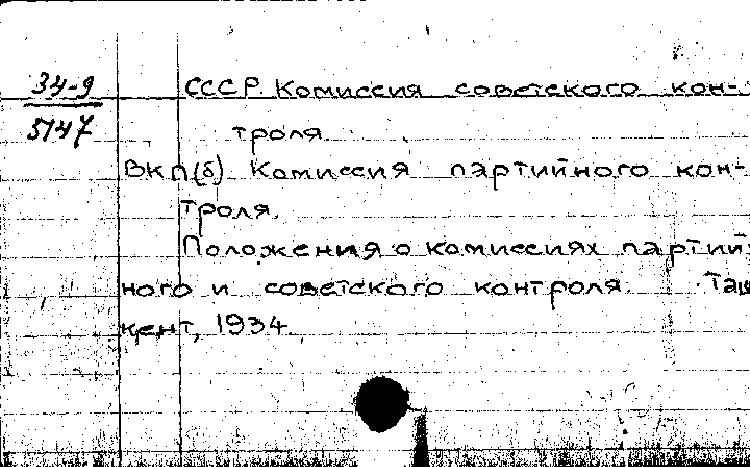 34-9
5147
СССР. Комиссия советского кон-
троля.
ВКП(б) Комиссия партийного кон-
троля.
Положения о комиссиях партий-
ного и советского контроля. Таш
кент, 1934.